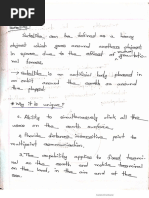 Satellite:-
→ Satellite can be defined as a heavy
object which goes around another object
in space due to the effect of gravitatio-
nal forces.
→ Satellite is an artificial body placed in
an orbit around the earth or another
planet
* Why it is unique?
1. Ability to simultaneously link all the
users on the earth surface.
2. Provide distance insensitive point to
multipoint communication.
3. The capability applies to fixed terminal
on the earth and to mobile terminal
on the land, in the air and at the
sea.